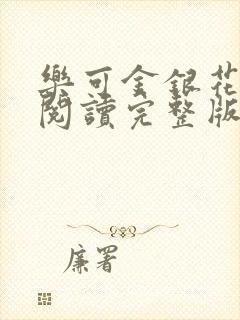 樂可金銀花
閱讀完整版
廉署